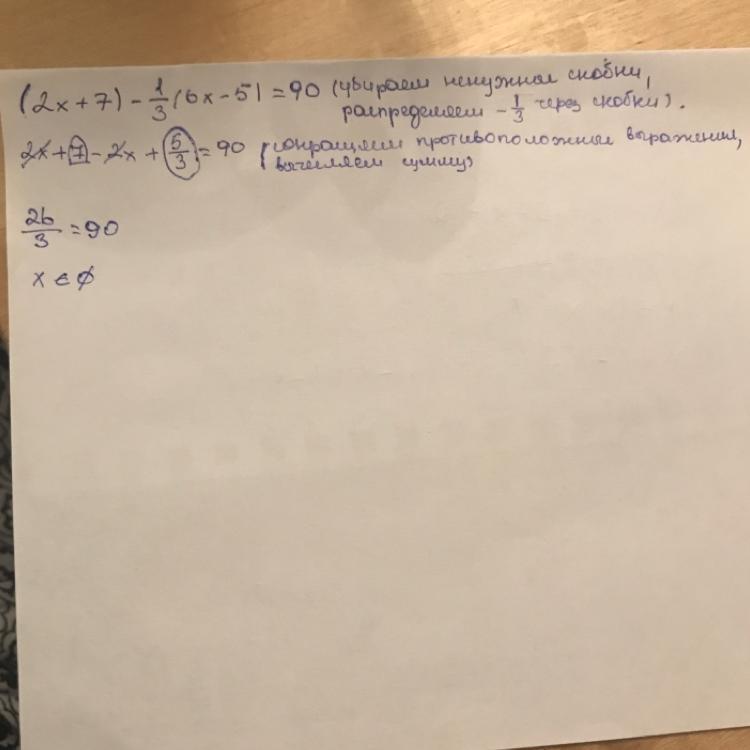 (2x+7) - 1/3 (6x-5) = 90 (убираем ненужные скобки,
распределяем - 1/3 через скобки).
2x + 7 - 2x + 5/3 = 90 (сокращаем противоположные выражения,
вычисляем сумму)
26/3 = 90
x ∈ ∅